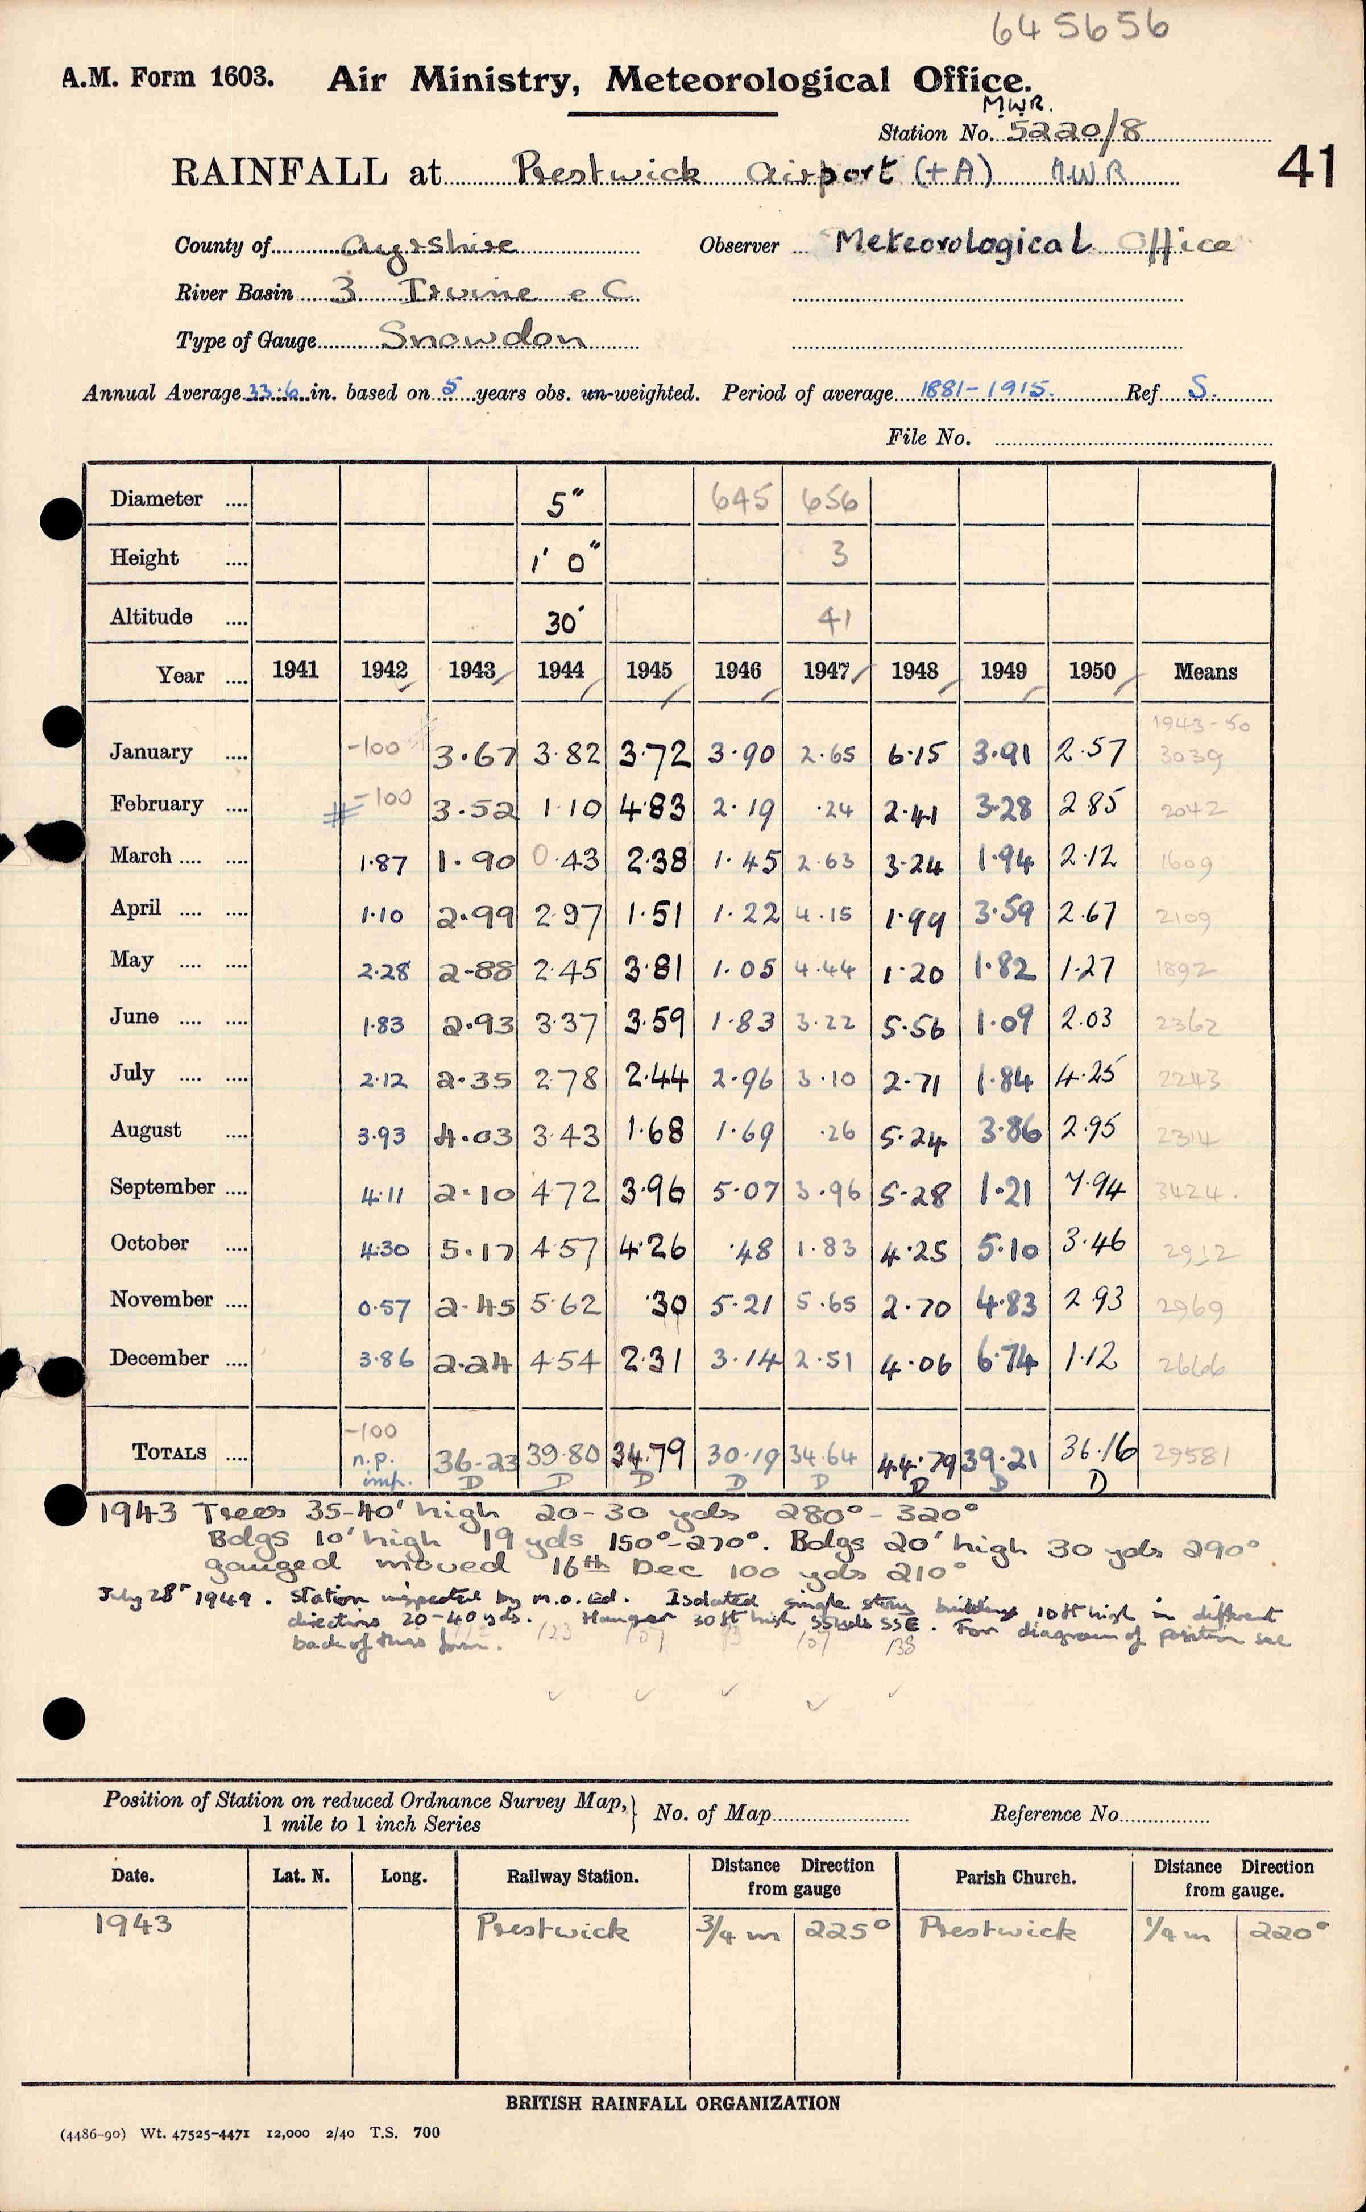 645656
A.M. Form 1603. Air Ministry, Meteorological Office.
MWR.
Station No. 5220/8
41
RAINFALL at Prestwick Airport (+A) MWR
County of Ayrshire Observer Meteorological Office
River Basin 3 Irvine e C
Type of Gauge Snowdon
Annual Average 33.6 in. based on 5 years obs. un-weighted. Period of average 1881-1915. Ref S.
File No.
Diameter .... 5" 645 656
Height .... 1' 0" 3
Altitude .... 30' 41
Year .... 1941 1942 1943 1944 1945 1946 1947 1948 1949 1950 Means
1943-50
January .... -100 3.67 3.82 3.72 3.90 2.65 6.15 3.91 2.57 3039
February .... -100 3.52 1.10 4.83 2.19 .24 2.41 3.28 2.85 2042
March .... .... 1.87 1.90 0.43 2.38 1.45 2.63 3.24 1.94 2.12 1609
April .... .... 1.10 2.99 2.97 1.51 1.22 4.15 1.99 3.59 2.67 2109
May .... .... 2.28 2.88 2.45 3.81 1.05 4.44 1.20 1.82 1.27 1892
June .... .... 1.83 2.93 3.37 3.59 1.83 3.22 5.56 1.09 2.03 2362
July .... .... 2.12 2.35 2.78 2.44 2.96 3.10 2.71 1.84 4.25 2243
August .... 3.93 4.03 3.43 1.68 1.69 .26 5.24 3.86 2.95 2314
September .... 4.11 2.10 4.72 3.96 5.07 3.96 5.28 1.21 7.94 3424.
October .... 4.30 5.17 4.57 4.26 .48 1.83 4.25 5.10 3.46 2912
November .... 0.57 2.45 5.62 .30 5.21 5.65 2.70 4.83 2.93 2969
December .... 3.86 2.24 4.54 2.31 3.14 2.51 4.06 6.74 1.12 2666
-100
TOTALS .... n.p. 36.23 39.80 34.79 30.19 34.64 44.79 39.21 36.16 29581
imp. D D D D D D D D
1943 Trees 35-40' high 20-30 yds 280°-320°
Bdgs 10' high 19 yds 150°-270°. Bdgs 20' high 30 yds 290°
gauged moved 16th Dec 100 yds 210°
July 28th 1949. Station inspected by M.O. Ed. Isolated single story buildings 10ft high in different
directions 20-40 yds. Hanger 30 ft high 55 yds SSE. For diagram of position see
back of this form. 123 107 107 138
Position of Station on reduced Ordnance Survey Map, 1 mile to 1 inch Series } No. of Map Reference No.
Date. Lat. N. Long. Railway Station. Distance Direction from gauge Parish Church. Distance Direction from gauge.
1943 Prestwick 3/4 m 225° Prestwick 1/4 m 220°
BRITISH RAINFALL ORGANIZATION
(4486-90) Wt. 47525-4471 12,000 2/40 T.S. 700